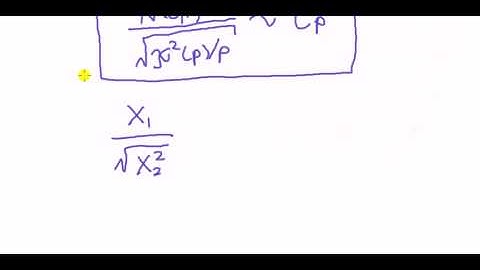 √χ²(p)/p ~ tp
X₁
√X₂²